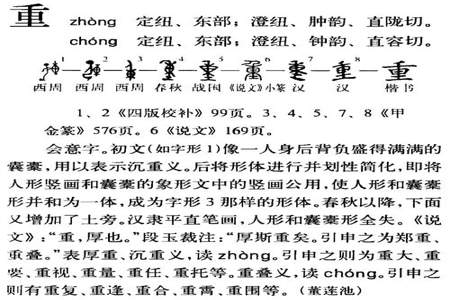 重 zhòng 定纽、东部；澄纽、肿韵、直陇切。
chóng 定纽、东部；澄纽、钟韵、直容切。
1 2 3 4 5 6 7 8
西周 西周 西周 春秋 战国 《说文》小篆 汉 汉 楷书
1、2《四版校补》99页。3、4、5、7、8《甲
金篆》576页。6《说文》169页。
会意字。初文(如字形1)像一人身后背负盛得满满的
囊橐，用以表示沉重义。后将形体进行并划性简化，即将
人形竖画和囊橐的象形文中的竖画公用，使人形和囊橐
形并和为一体，成为字形3那样的形体。春秋以降，下面
又增加了土旁。汉隶平直笔画，人形和囊橐形全失。《说
文》：“重，厚也。”段玉裁注：“厚斯重矣。引申之为郑重、
重叠。”表厚重、沉重义，读zhòng。引申之则为重大、重
要、重视、重量、重任、重托等。重叠义，读chóng。引申之
则有重复、重逢、重合、重霄、重围等。(董莲池)